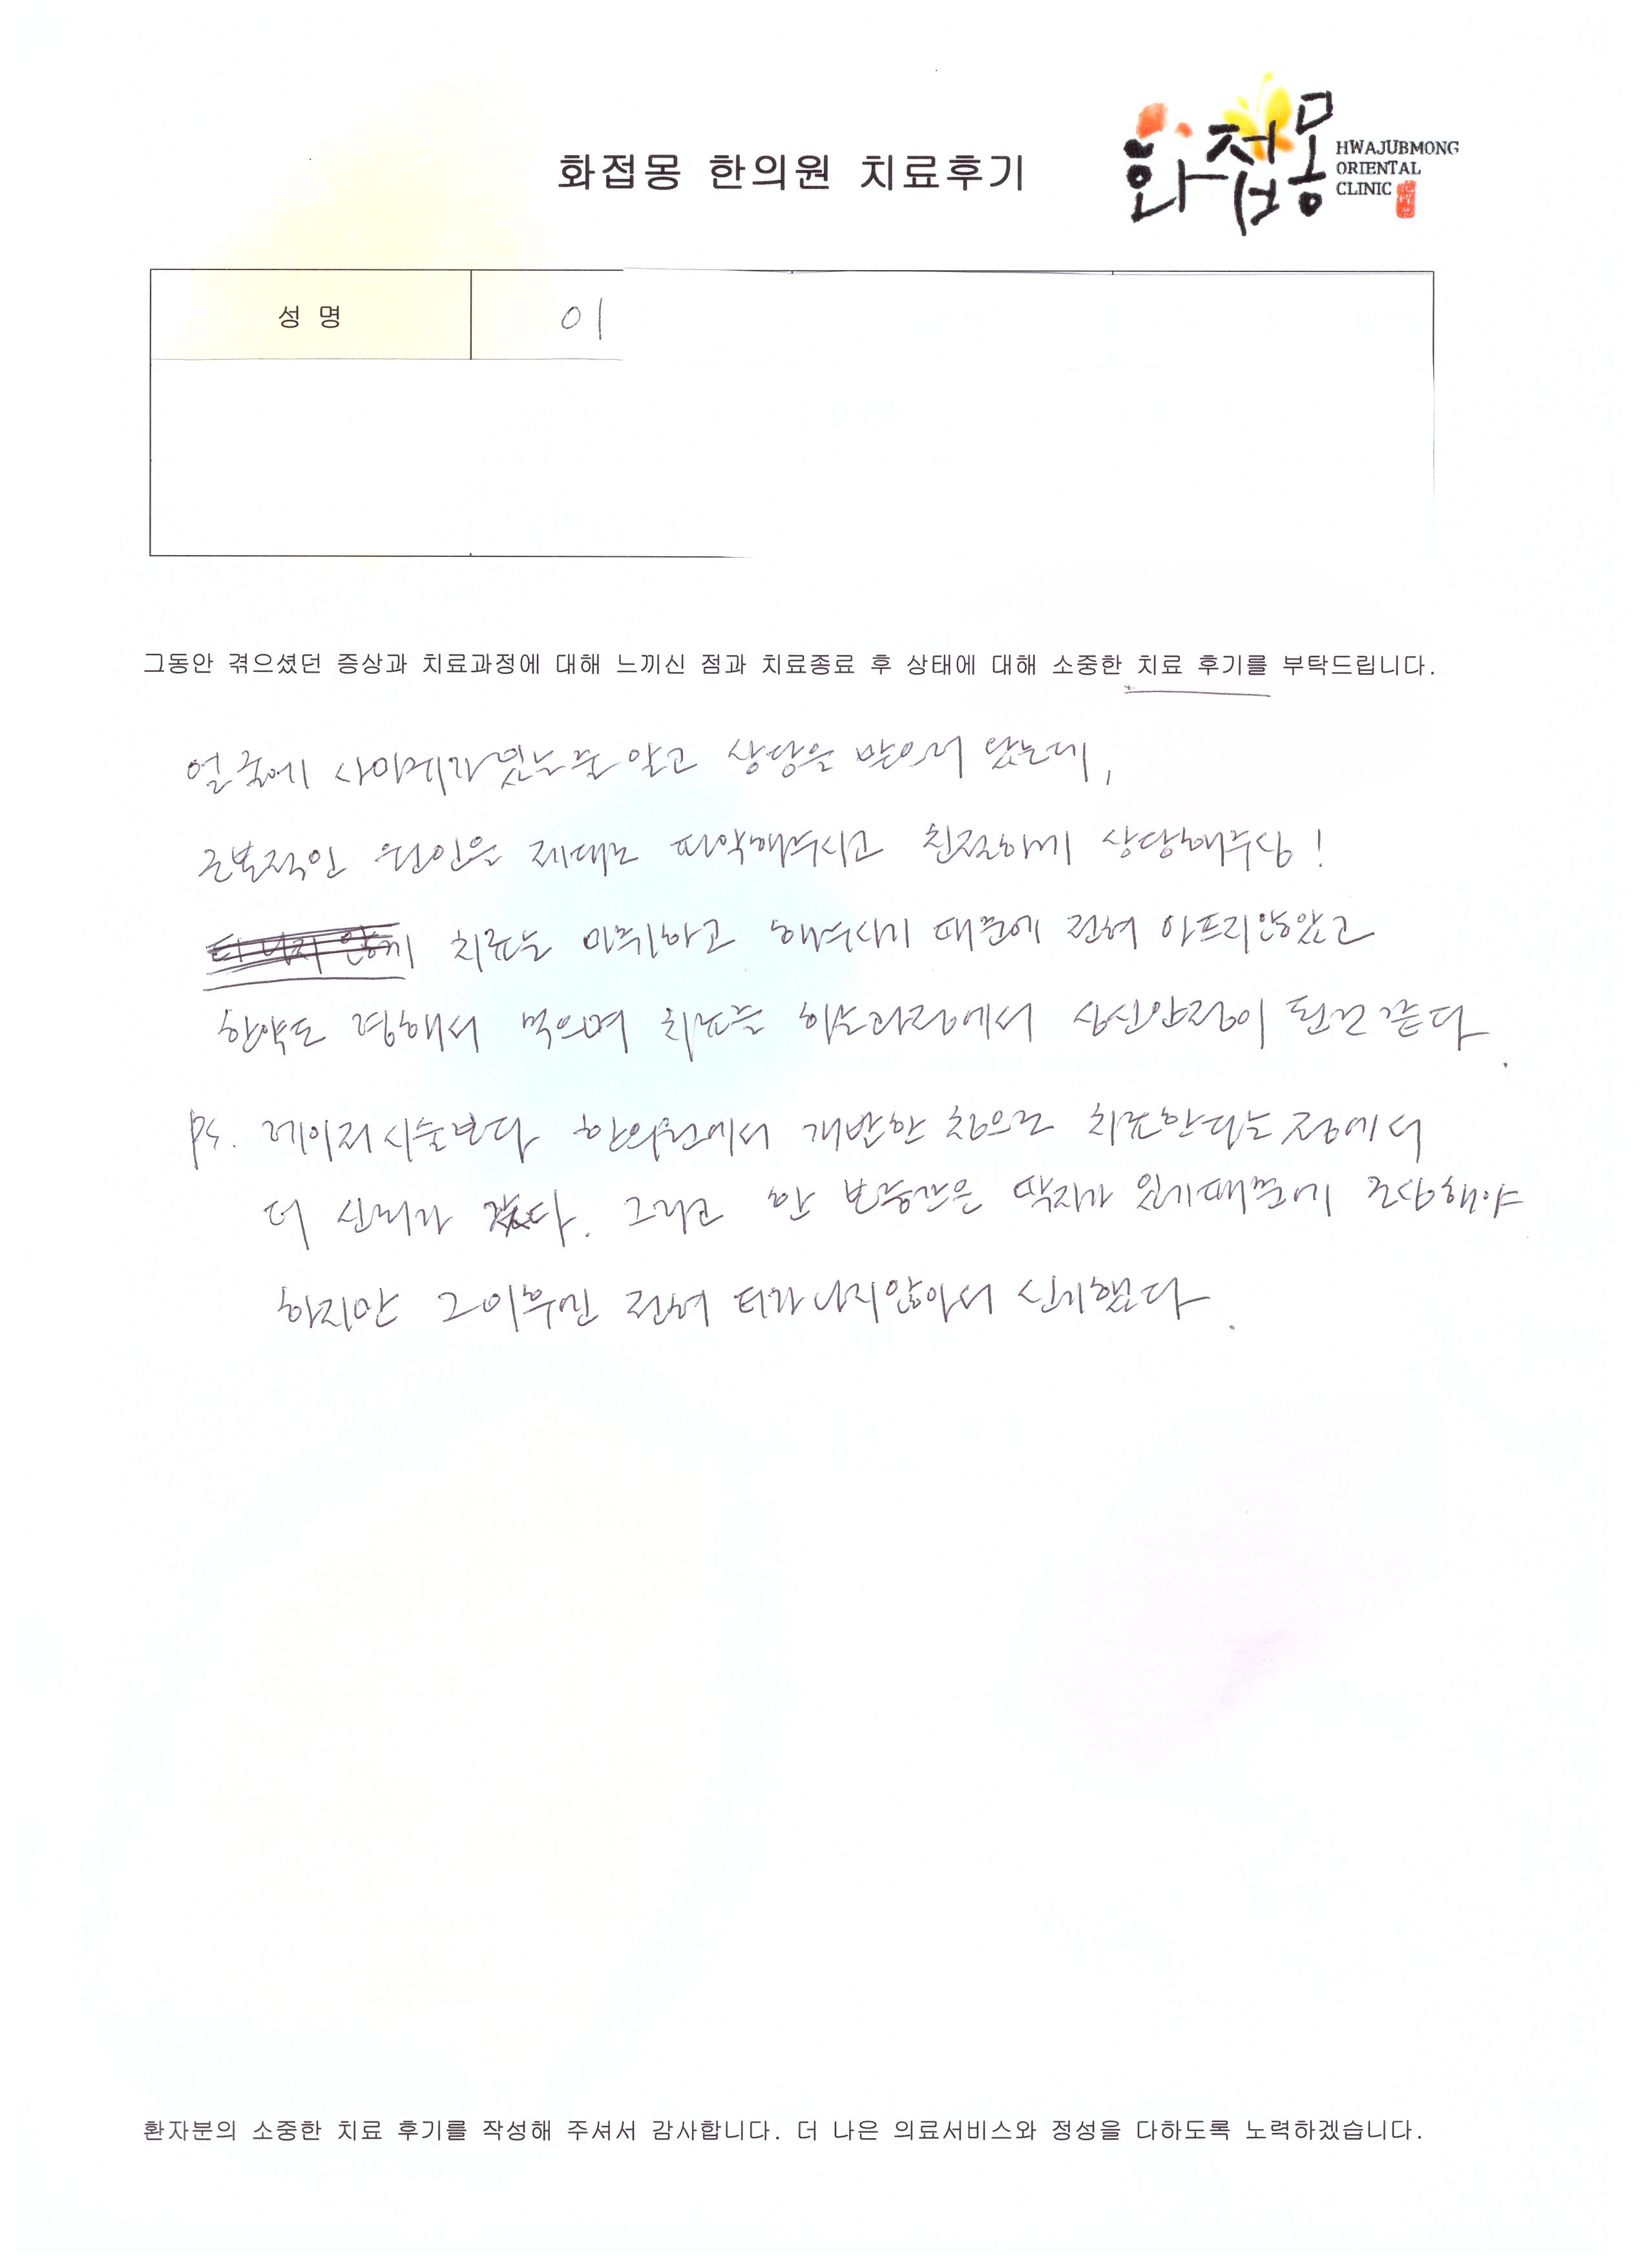 화접몽 한의원 치료후기
화접몽
HWAJUBMONG
ORIENTAL
CLINIC
성 명
이
그동안 겪으셨던 증상과 치료과정에 대해 느끼신 점과 치료종료 후 상태에 대해 소중한 치료 후기를 부탁드립니다.
얼굴에 사마귀가 있는줄 알고 상담을 받으러 왔는데,
근본적인 원인을 제대로 파악해주시고 친절하게 상담해주심!
치료는 마취하고 해주시기 때문에 전혀 아프지않았고
한약도 병행해서 먹으며 치료를 하는과정에서 심신안정이 된것 같다.
ps. 레이저시술보다 한의원에서 개발한 침으로 치료한다는점에서
더 신뢰가 갔다. 그리고 한 보름간은 딱지가 있기때문에 조심해야
하지만 그이후엔 전혀 티가나지않아서 신기했다.
환자분의 소중한 치료 후기를 작성해 주셔서 감사합니다. 더 나은 의료서비스와 정성을 다하도록 노력하겠습니다.